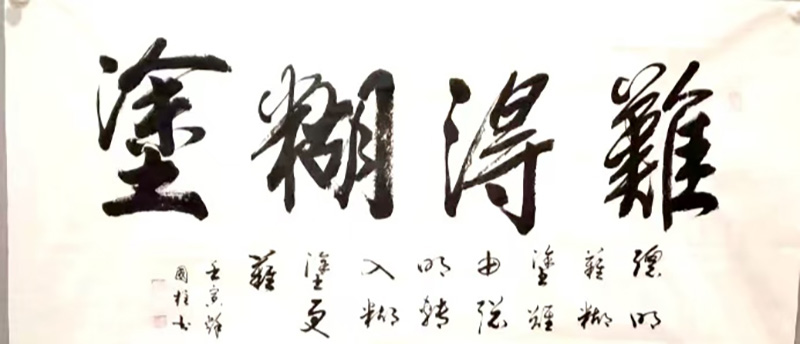 難得糊塗
聰明
難糊
塗難
由聰
明轉
入糊
塗更
難
壬寅
國柱书